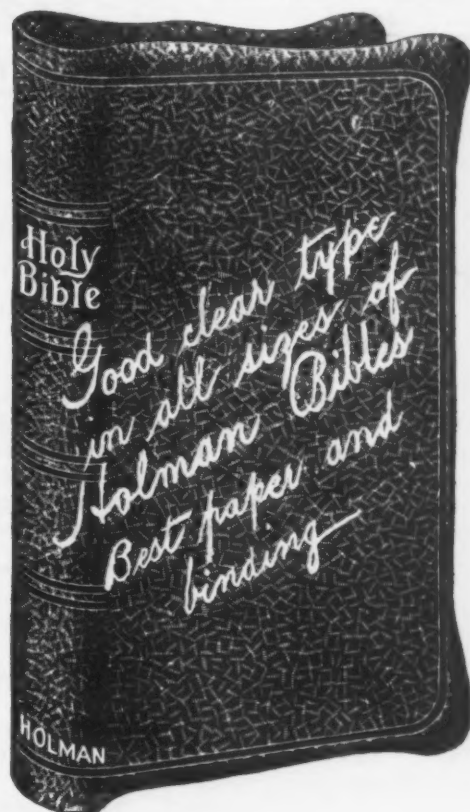 Holy
Bible
Good clear type
in all sizes of
Holman Bibles
Best paper and
binding
HOLMAN